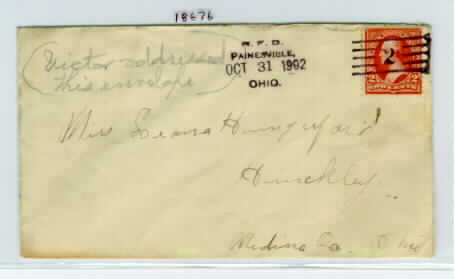 18676
R. F. D.
PAINESVILLE,
OCT 31 1902
OHIO.
2
2 2
Victor addressed
this envelope
Miss Leona Hungerford
Hinckley
Medina Co. Ohio